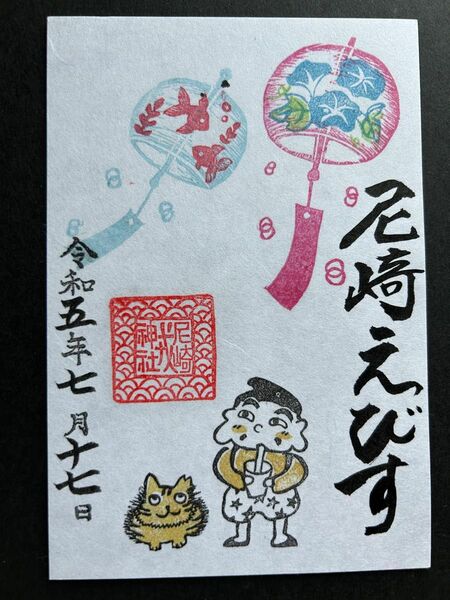 尼崎えびす
尼崎
神社
令和五年七月十七日